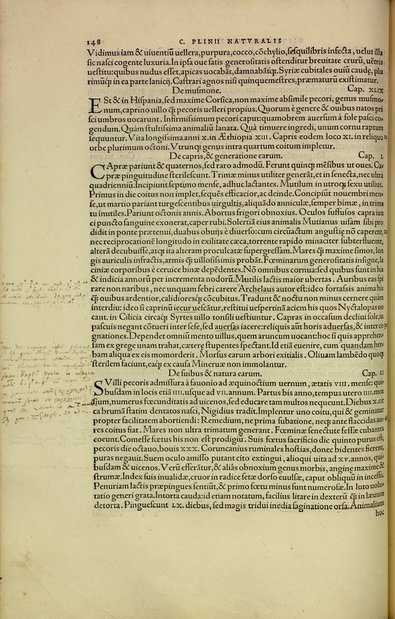 148 C. PLINII NATVRALIS
Vidimus iam & uiuentiū uellera, purpura, cocco, cōchylio, sesquilibris infecta, uelut illa
sic nasci cogente luxuria. In ipsa oue satis generositatis ostenditur breuitate crurū, uētris
uestitu: quibus nudus esset, apicas uocabāt, damnabāsq;. Syriæ cubitales ouiū caudę, plu
rimūq; in ea parte lanicij. Castrari agnos nisi quinquemestres, præmaturū existimatur.
De musmone. Cap. XLIX.
ESt & in Hispania, sed maxime Corsica, non maxime absimile pecori, genus musmo
num, caprino uillo q̄ pecoris uelleri propius. Quorum è genere & ouibus natos pri
sci umbros uocarunt. Infirmissimum pecori caput: quamobrem auersum à sole pasci co
gendum. Quàm stultissima animaliū lanata. Quà timuere ingredi, unum cornu raptum
sequuntur. Vita longissima anni X. in Æthiopia XIII. Capris eodem loco XI. in reliquo
orbe plurimum octoni. Vtrunq; genus intra quartum coitum impletur.
De capris, & generatione earum. Cap. L.
CApræ pariunt & quaternos, sed raro admodū. Ferunt quinq; mēsibus ut oues. Ca
præ pinguitudine sterilescunt. Trimæ minus utiliter generāt, et in senecta, nec ultra
quadriennīū. Incipiunt septimo mense, adhuc lactantes. Mutilum in utroq; sexu utilius.
Primus in die coitus non implet, sequēs efficacior, ac deinde. Concipiūt nouembri mense,
ut martio pariant turgescentibus uirgultis, aliquādo anniculæ, semper bimæ, in tri
matu inutiles. Pariunt octonis annis. Abortus frigori obnoxius. Oculos suffusos capra iun
ci puncto sanguine exonerat, caper rubi. Solertiā eius animalis Mutianus uisam sibi pro
didit in ponte prætenui, duabus obuijs è diuerso: cum circūactum angustię nō caperent,
nec reciprocationē longitudo in exilitate cæca, torrente rapido minaciter subterfluente,
alterā decubuisse, atq; ita alteram proculcatæ supergressam. Mares q̄ maxime simos, lon
gis auriculis infractis, armis q̄ uillosissimis probāt. Feminarum generositatis insigne, la
ciniæ corporibus è ceruice binæ dēpēdentes. Nō omnibus cornua: sed quibus sunt in his
& indicia annorū per incrementa nodorū. Mutilis lactis maior ubertas. Auribus eas spi
rare non naribus, nec unquam febri carere Archelaus autor est: ideo fortassis anima his
q̄ ouibus ardentior, calidioresq; cōcubitus. Tradunt & noctu non minus cernere quàm
interdiu: ideo si caprinū iecur uescātur, restitui uespertinā aciem his quos Nyctalopas uo
cant. in Cilicia circaq; Syrtes uillo tonsili uestiuntur. Capras in occasum decliui sole in
pascuis negant cōtueri inter sese, sed auersas iacere: reliquis aūt horis aduersas, & inter co
gnationes. Dependet omniū mento uillus, quem aruncum uocant: hoc si quis apprehen
sam ex grege unam trahat, cæteræ stupentes spectant. Id etiā euenire, cum quandam her
bam aliqua ex eis momorderit. Morsus earum arbori exitialis. Oliuam lambēdo quoq;
sterilem faciunt, eaq; ex causa Mineruæ non immolantur.
De suibus & natura earum.
SVilli pecoris admissura à fauonio ad æquinoctium uernum, ætatis VIII. mense: qui
busdam in locis etiā IIII. usq; ad VII. annum. Partus bis anno, tempus utero IIII. men
sium, numerus fœcunditati ad uicenos, sed educare tam multos nequeunt.
bra urumā statim dentatos nasci, Nigidius tradit. Implentur uno coitu, qui & geminatur
propter facilitatem abortiendi: Remedium, ne prima subatione, neq; ante flaccidas au
res coitus fiat. Mares non ultra trimatum generant. Fœminæ senectute fessæ cubantes
coeunt. Comesse fœtus his non est prodigiū. Suis fœtus sacrificio die quinto purus est,
pecoris die octauo, bouis XXX. Coruncanius ruminales hostias, donec bidentes fierent,
puras negauit. Suem oculo amisso putant cito extingui, alioqui uita ad XV. annos, qui
busdam & uicenos. Verū efferātur, & aliās obnoxium genus morbis, anginę maxime &
strumæ. Index suis inualidæ, cruor in radice setæ dorso euulsæ, caput obliquū in incessu.
Penuriam lactis præpingues sentiūt, & primo fœtu minus sunt numerosæ. In luto uolu
tatio generi grata. Intorta cauda: id etiam notatum, facilius litare in dexterū q̄ in læuum
detorta. Pinguescunt LX. diebus, sed magis tridui inedia saginatione orsa. Animalium
hoc